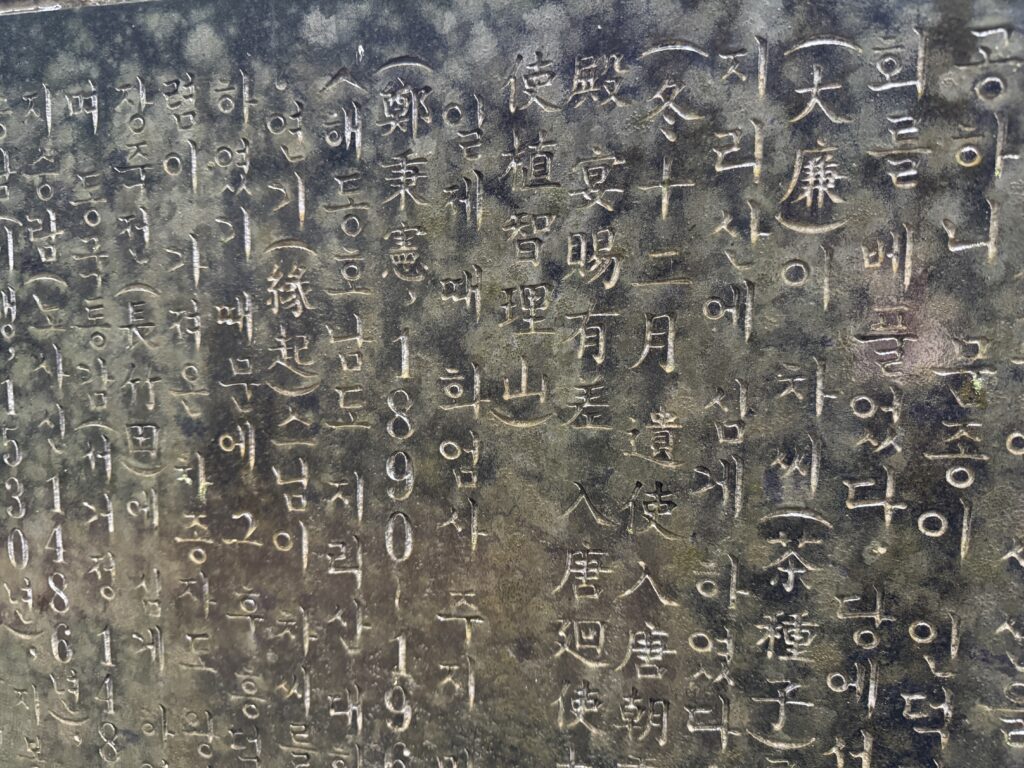 사신을
공하니 문종이 인덕
회를 베풀었다. 당에서
(大廉)이 차씨(茶種子)
지리산에 심게 하였다
(冬十二月 遺使入唐朝
殿 宴賜有差 入唐廻使
使植智理山)
일제 때 화엄사 주지
(鄭秉憲, 1890-196
해동호남도 지리산 대화
연기(緣起)스님이 차씨를
하였기 때문에 그 후 흥덕
렴이 가져온 차종자도 왕
장죽전(長竹田)에 심게 하
며 동국통감(서거정 148
지승람(노사신 1486년)·
람(이행, 1530년)· 지봉